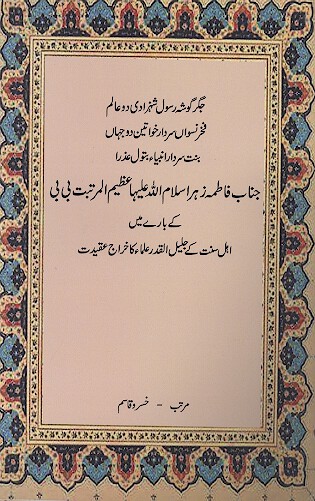 جگر گوشہ رسول شہزادی دو عالم
فخر نسواں سردار خواتین دو جہاں
بنت سردار انبیاء بتول عذرا
جناب فاطمہ زہرا سلام اللہ علیہا عظیم المرتبت بی بی
کے بارے میں
اہل سنت کے جلیل القدر علماء کا خراج عقیدت
مرتب - خسرو قاسم